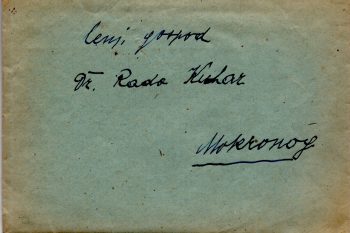 Cenj. gospod
Dr. Rado Kuhar
Mokronog